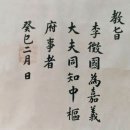 教旨
李徵國為嘉義
大夫同知中樞
府事者
癸巳二月 日